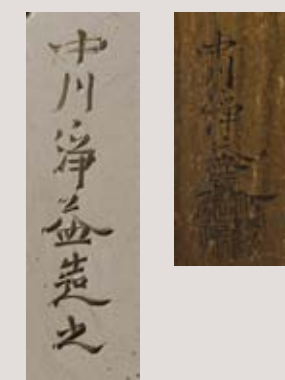 中川淨益造之
中川淨益